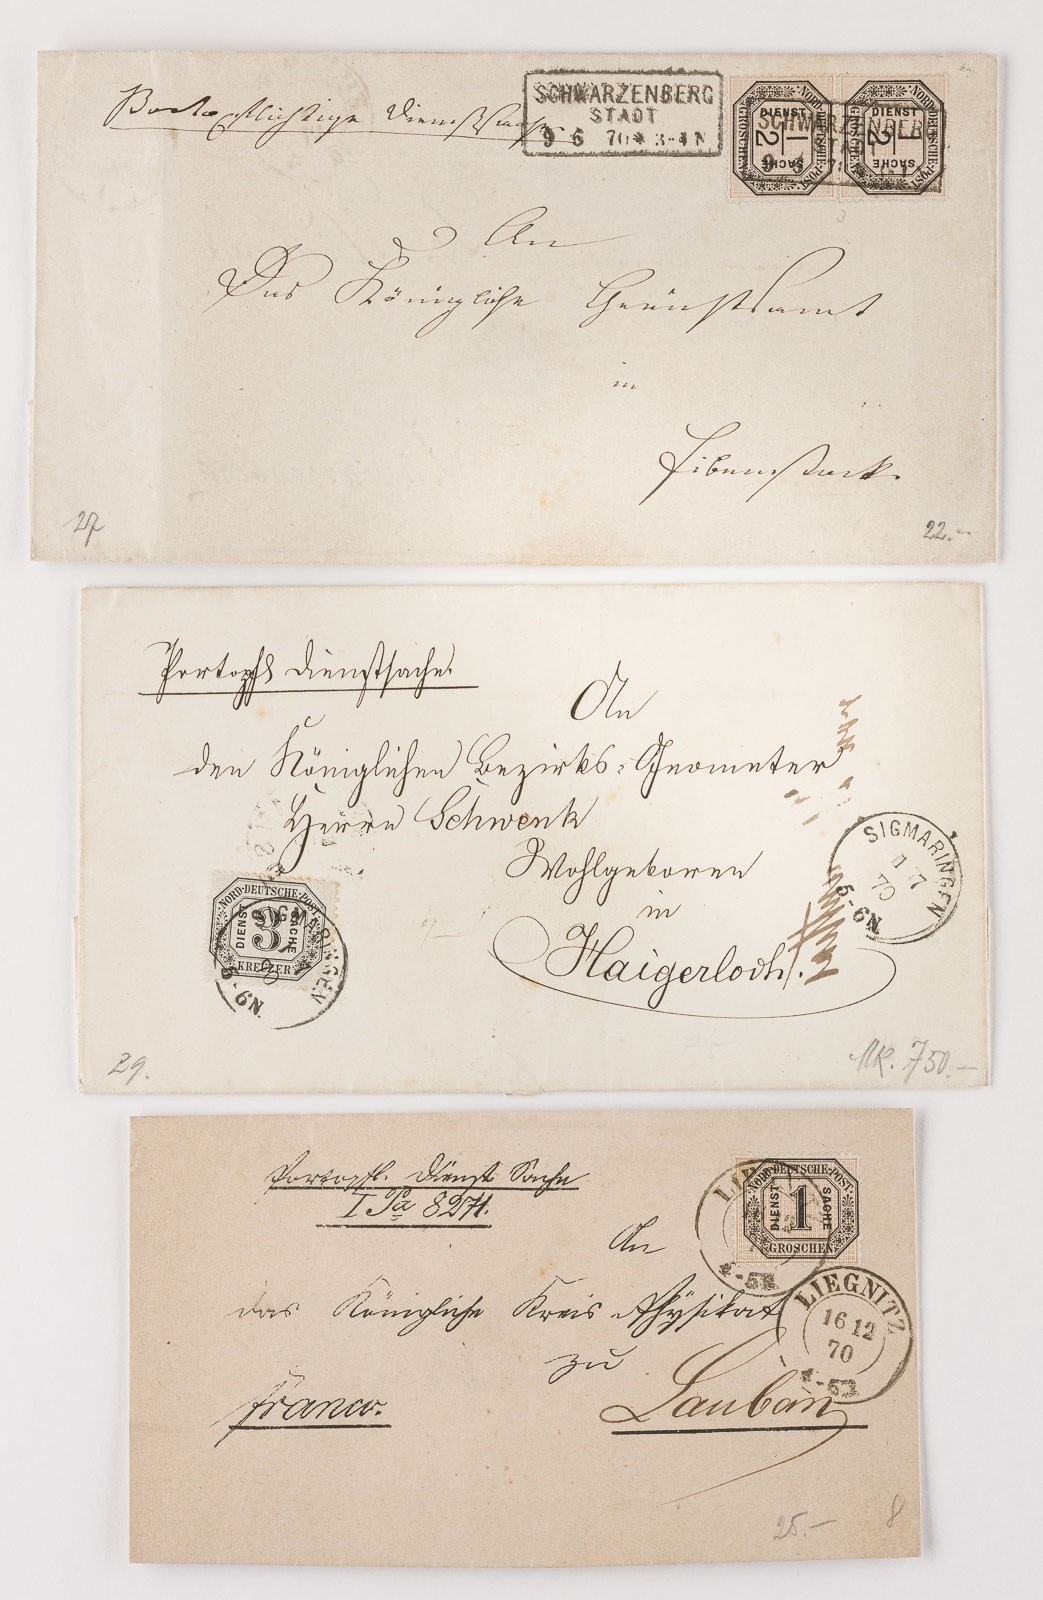 Portopflichtige Dienstsache
SCHWARZENBERG
STADT
9 6 70 * 3-4 N
NORDDEUTSCHE-POST
DIENST
SACHE
1/2
GROSCHEN
NORDDEUTSCHE-POST
DIENST
SACHE
1/2
GROSCHEN
SCHWARZENBERG
STADT
An
Das Königliche Gerichtsamt
in
Eibenstock.
27
22.-
Portopfl Dienstsache
An
den Königlichen Bezirks-Geometer
Herrn Schwenk
Wohlgeboren
in
Haigerloch.
SIGMARINGEN
7
70
5-6N.
NORD-DEUTSCHE-POST
DIENST
3
SACHE
KREUZER
SIGMARINGEN
5-6N.
29.
Mk. 750.-
Portopfl. Dienst Sache
I Pa 8271.
An
das Königliche Kreis Physikat
zu
Lauban
franco.
NORD-DEUTSCHE-POST
DIENST
1
SACHE
GROSCHEN
LIEGNITZ
16 12
70
25.-
8